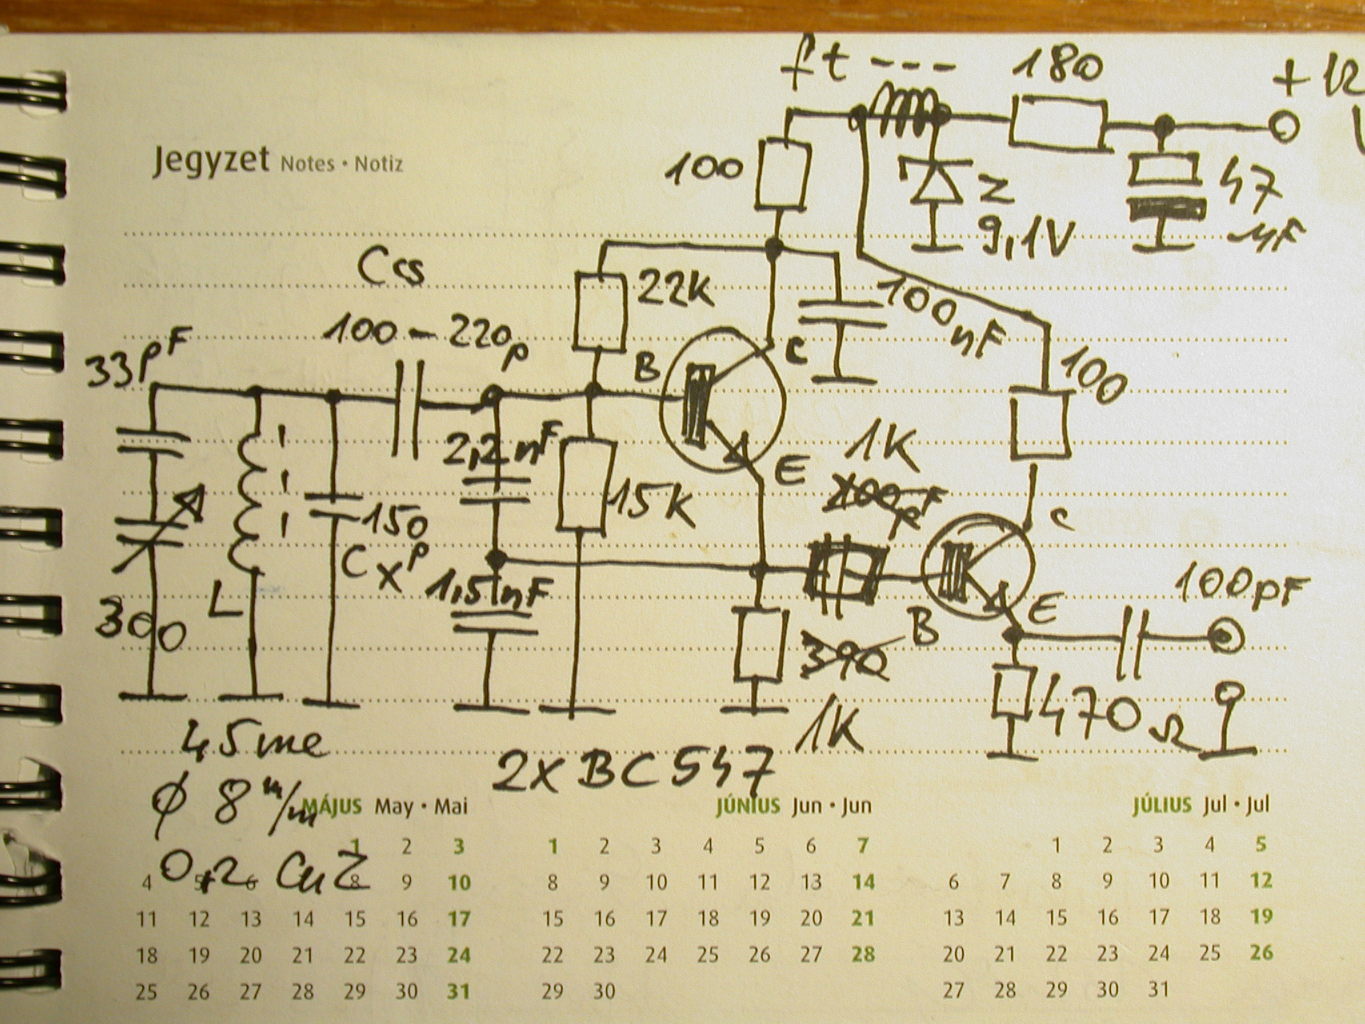 ft --- 180 + 12
Jegyzet Notes • Notiz
100
Z 47
9,1V µF
Ccs
22K 100nF
100-220p
33pF B C
100
2,2nF 1K
E
15K
150p C
Cx
1,5nF 100pF
L
300 B E
390
470Ω
45me 1K
2x BC547
Ø 8 m/m
MÁJUS May • Mai JÚNIUS Jun • Jun JÚLIUS Jul • Jul
0,2 CuZ
1 2 3 1 2 3 4 5 6 7 1 2 3 4 5
4 5 6 8 9 10 8 9 10 11 12 13 14 6 7 8 9 10 11 12
11 12 13 14 15 16 17 15 16 17 18 19 20 21 13 14 15 16 17 18 19
18 19 20 21 22 23 24 22 23 24 25 26 27 28 20 21 22 23 24 25 26
25 26 27 28 29 30 31 29 30 27 28 29 30 31